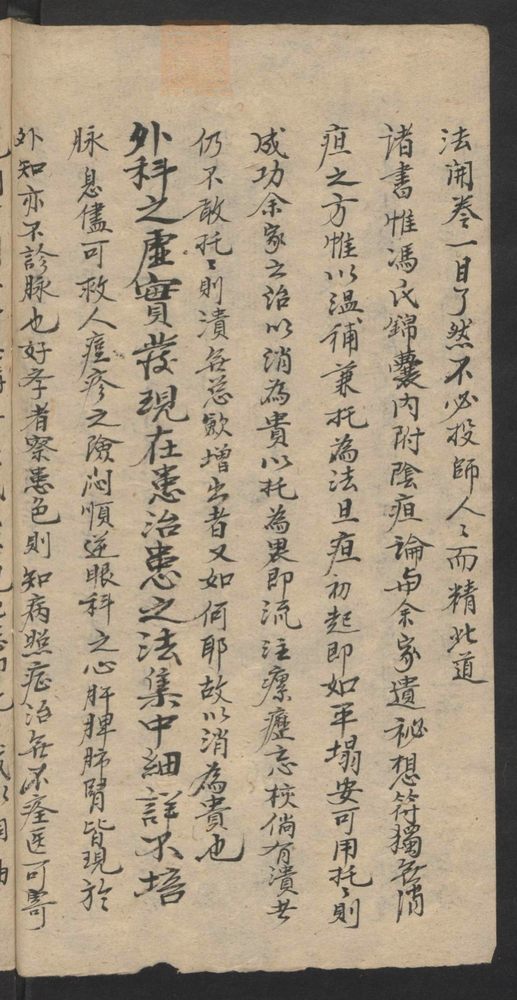 法開卷一目了然不必投師人〻而精此道
諸書惟馮氏錦囊內附陰疽論與余家遺祕想符獨無消
疽之方惟以溫補兼托為法且疽初起即如平塌安可用托〻則
成功余家之治以消為貴以托為畏即流注瘰癧忘核倘有潰者
仍不敢托〻則潰無患歛增出者又如何耶故以消為貴也
外科之虛實發現在患治患之法集中細詳不
脉息儘可救人痘疹之險悶順逆眼科之心肝脾肺腎皆現於
外知亦不診脉也好學者察患色則知病照症治無不痊医可寄